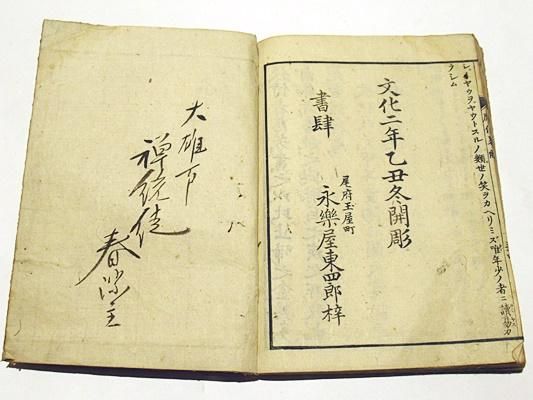 シ、ヤウヲ、ヤウトスルノ類世ノ笑ヲカヘリミズ唯年少ノ者ニ讀易カ
ラシム
文化二年乙丑冬開彫
書肆
尾府玉屋町
永樂屋東四郎梓
大雄下
禅統徒
春
主